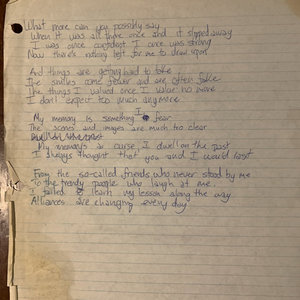 What more can you possibly say
When it was all there once and it slipped away
I was once confident I once was strong
Now there's nothing left for me to draw upon
And things are getting hard to take
The smiles come fewer and are often fake
The things I valued once I value no more
I don't expect too much anymore
My memory is something I fear
The scenes and images are much too clear
My memory's a curse, I dwell on the past
I always thought that you and I would last
From the so-called friends who never stood by me
To the trendy people who laugh at me
I failed to learn my lesson along the way
Alliances are changing every day